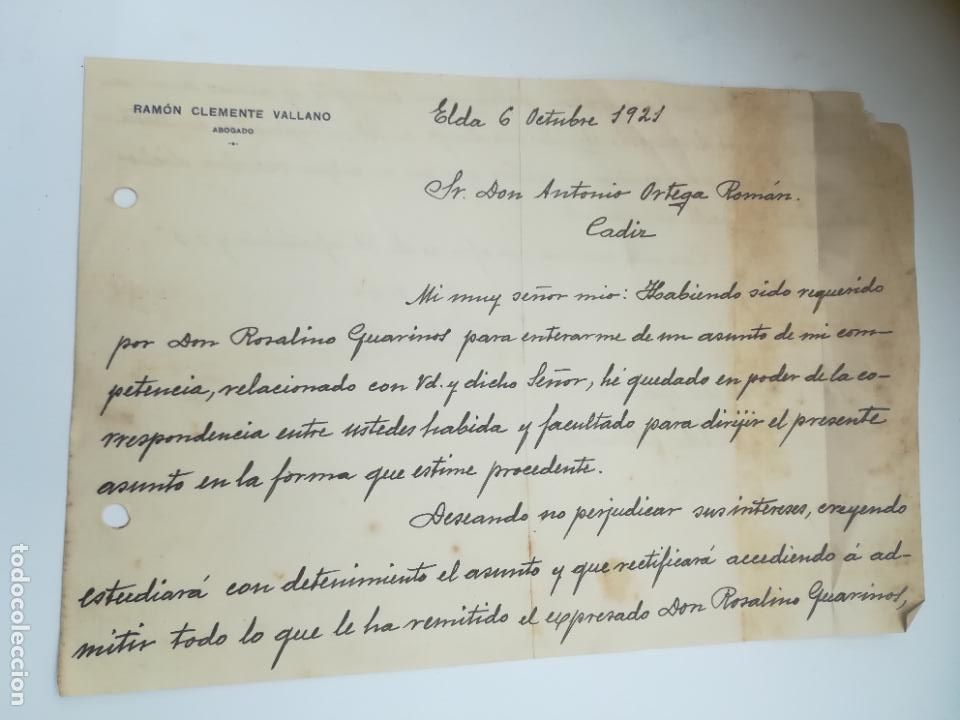 RAMÓN CLEMENTE VALLANO
ABOGADO
Elda 6 Octubre 1921
Sr. Don Antonio Ortega Román.
Cadiz
Mi muy señor mio: Habiendo sido requerido
por Don Rosalino Guarinos para enterarme de un asunto de mi com-
petencia, relacionado con Vd. y dicho Señor, hé quedado en poder de la co-
rrespondencia entre ustedes habida y facultado para dirijir el presente
asunto en la forma que estime procedente.
Deseando no perjudicar sus intereses, creyendo
estudiará con detenimiento el asunto y que rectificará accediendo á ad-
mitir todo lo que le ha remitido el expresado Don Rosalino Guarinos,
todocoleccion.net